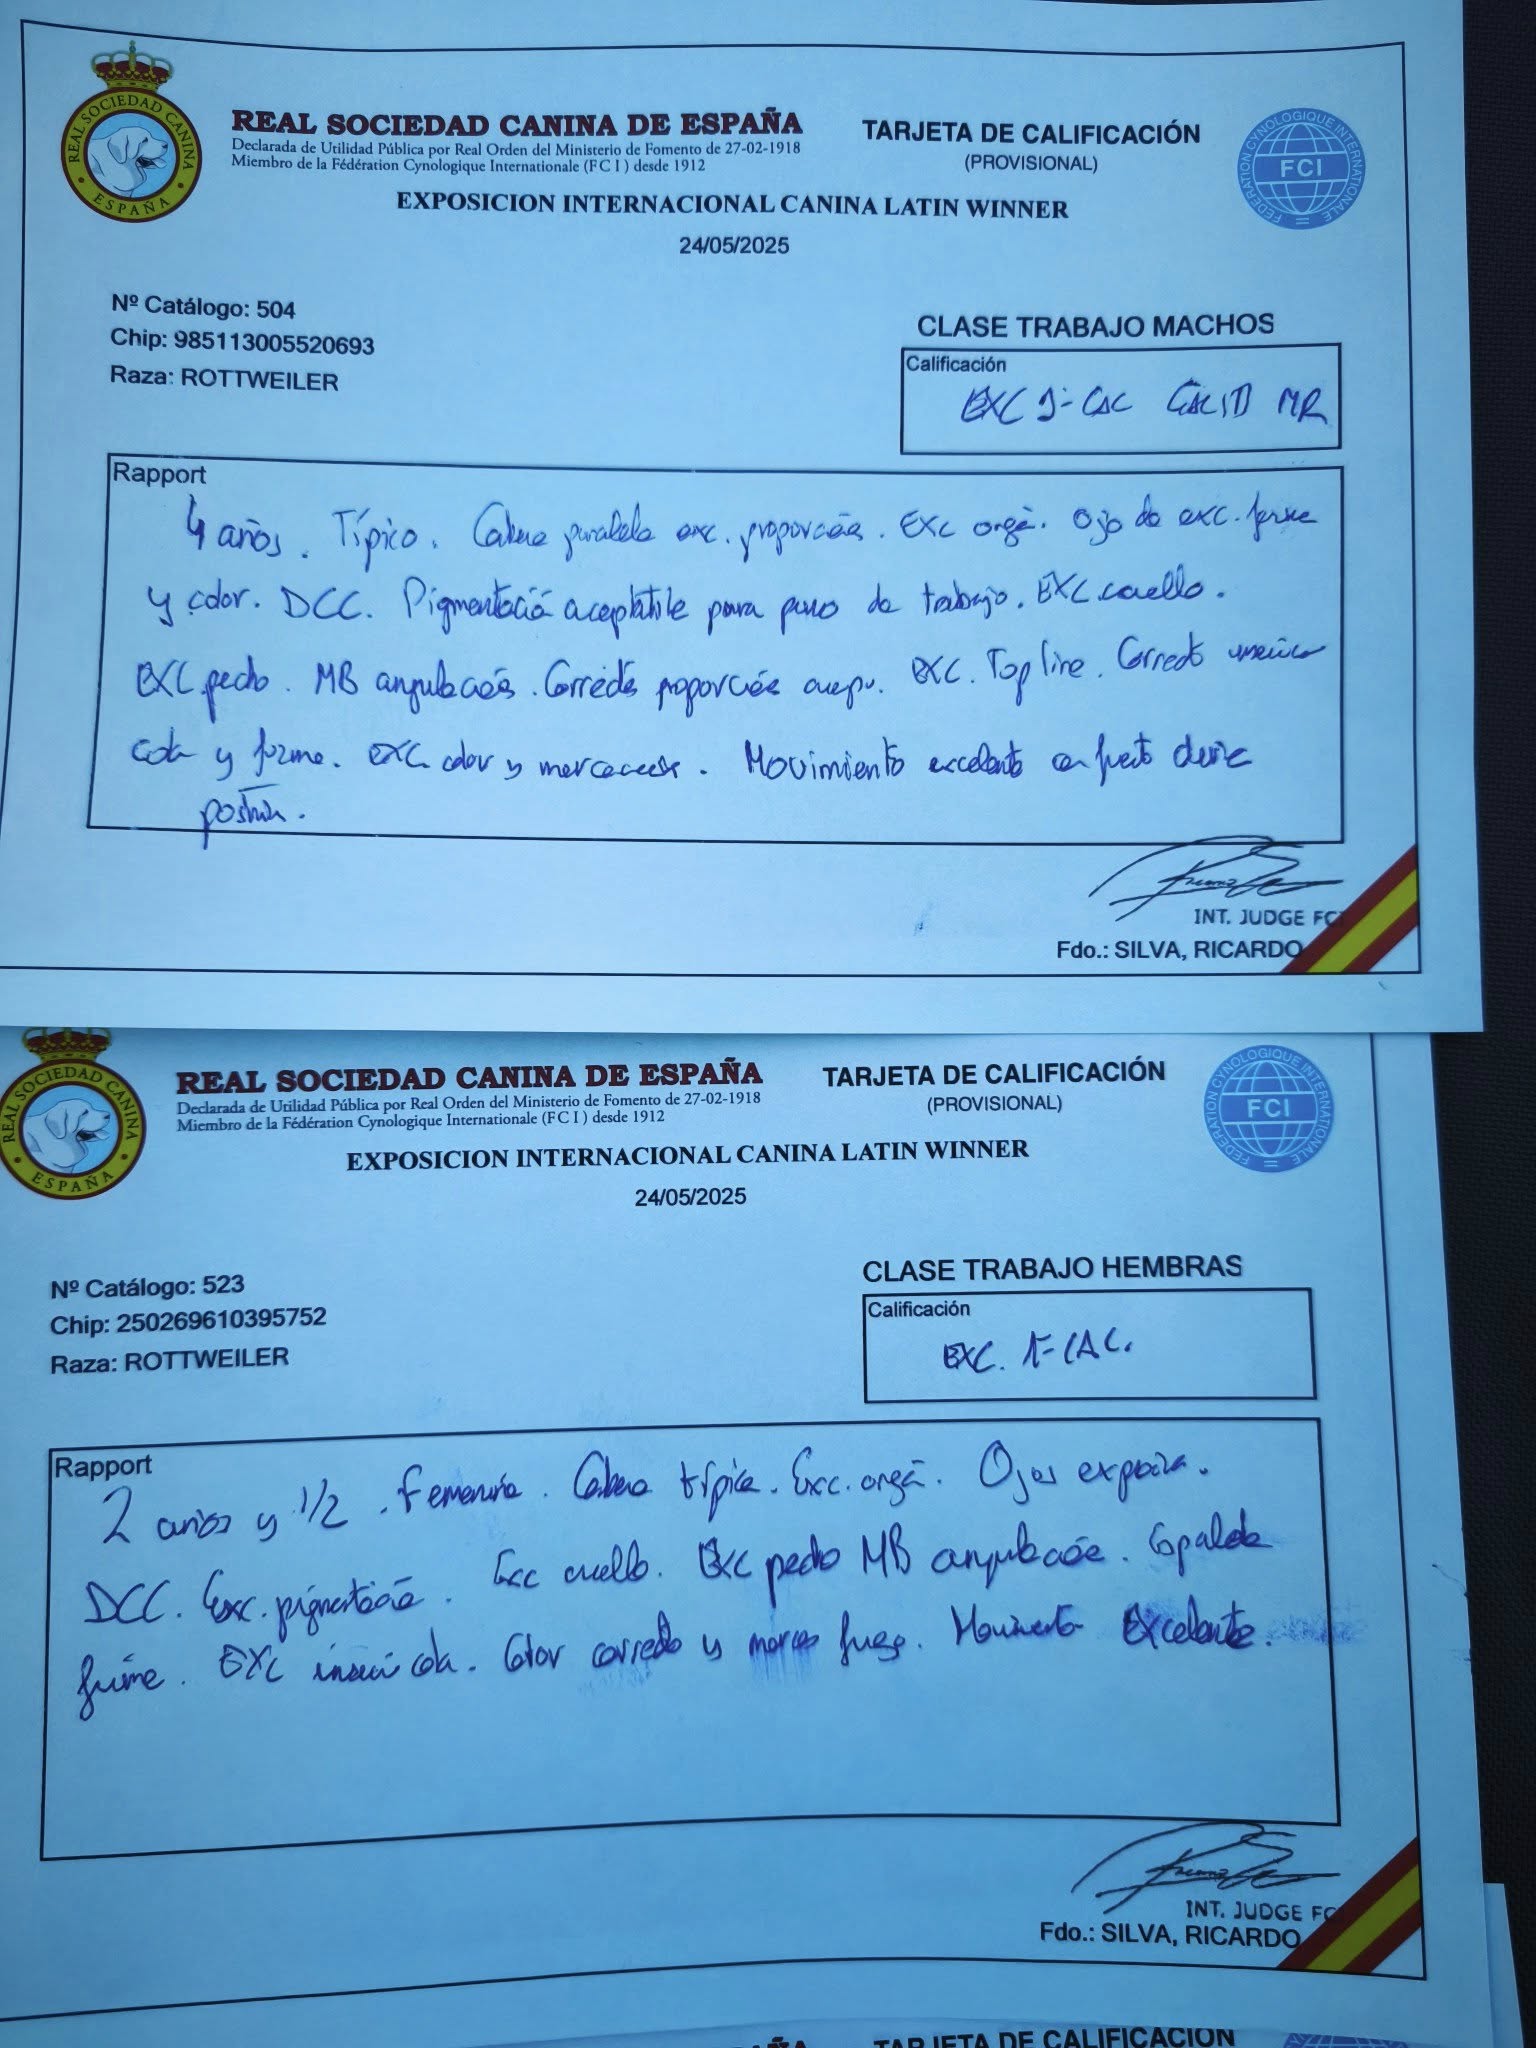 REAL SOCIEDAD CANINA ESPAÑA
REAL SOCIEDAD CANINA DE ESPAÑA
Declarada de Utilidad Pública por Real Orden del Ministerio de Fomento de 27-02-1918
Miembro de la Fédération Cynologique Internationale (F C I ) desde 1912
TARJETA DE CALIFICACIÓN
(PROVISIONAL)
FEDERATION CYNOLOGIQUE INTERNATIONALE
FCI
EXPOSICION INTERNACIONAL CANINA LATIN WINNER
24/05/2025
Nº Catálogo: 504
Chip: 985113005520693
Raza: ROTTWEILER
CLASE TRABAJO MACHOS
Calificación
EXC 1- CAC CACIB MR
Rapport
4 años. Típico. Cabeza paralela exc. Exc Ojo de exc. forma
y color. DCC. aceptable para perro de trabajo. EXC cuello.
EXC pecho. MB EXC. Top line. Correcto
cola y forma. EXC color y Movimiento excelente
INT. JUDGE FCI
Fdo.: SILVA, RICARDO
REAL SOCIEDAD CANINA ESPAÑA
REAL SOCIEDAD CANINA DE ESPAÑA
Declarada de Utilidad Pública por Real Orden del Ministerio de Fomento de 27-02-1918
Miembro de la Fédération Cynologique Internationale (F C I ) desde 1912
TARJETA DE CALIFICACIÓN
(PROVISIONAL)
FEDERATION CYNOLOGIQUE INTERNATIONALE
FCI
EXPOSICION INTERNACIONAL CANINA LATIN WINNER
24/05/2025
Nº Catálogo: 523
Chip: 250269610395752
Raza: ROTTWEILER
CLASE TRABAJO HEMBRAS
Calificación
EXC. 1-CAC.
Rapport
2 años y 1/2. Femenina. Cabeza típica. Exc. Ojos
DCC. Exc. Exc cuello. EXC pecho MB Espalda
firme. EXC cola. Color correcto y marcas fuego. Movimiento Excelente.
INT. JUDGE FC
Fdo.: SILVA, RICARDO
TARJETA DE CALIFICACIÓN